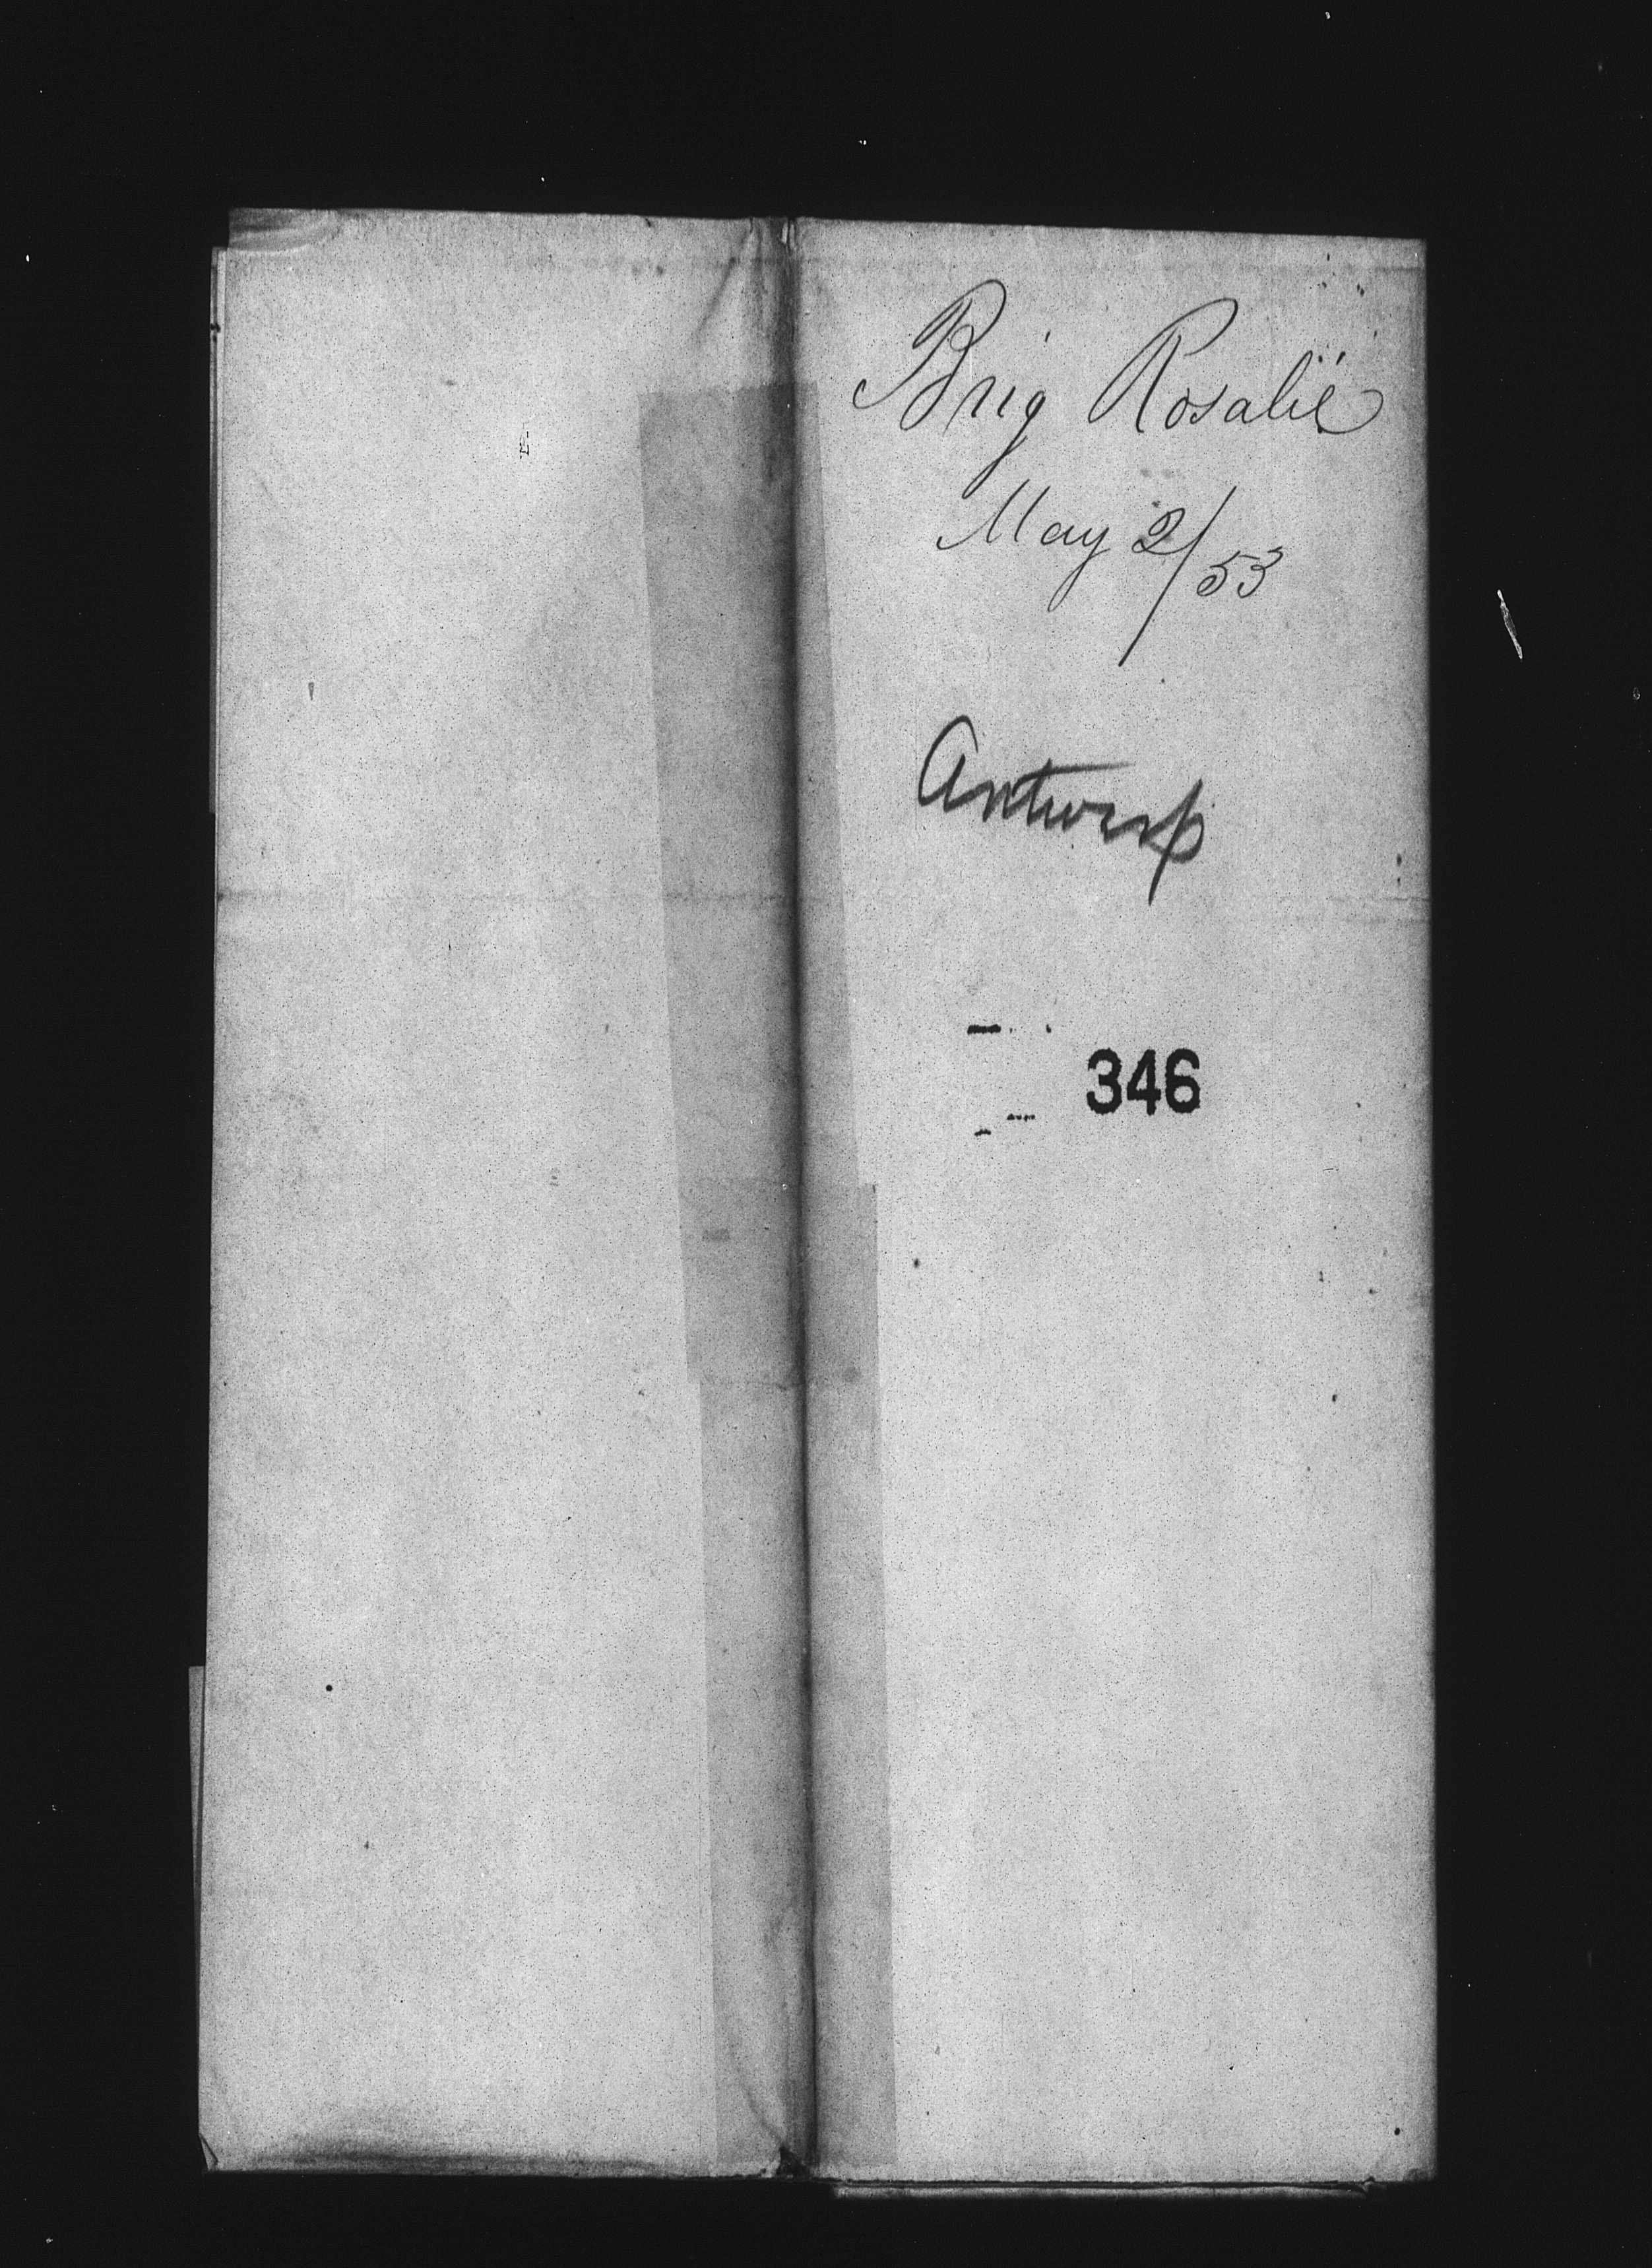 Brig Rosalie
May 2/53
Antwerp
346